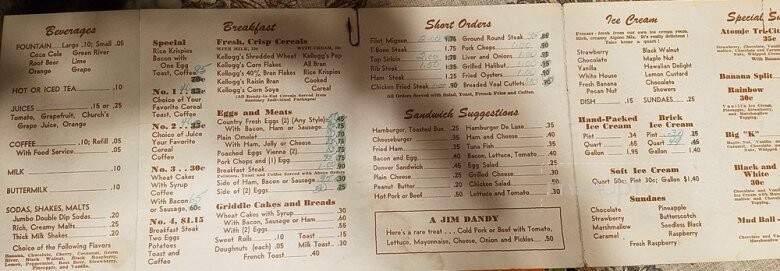 Beverages
FOUNTAIN Large .10; Small .05
Coca Cola Green River
Root Beer Lime
Orange Grape
HOT or ICED TEA .10
JUICES .15 or .25
Tomato, Grapefruit, Church's
Grape Juice, Orange
COFFEE .10; Refill .05
With Food Service .05
MILK .10
BUTTERMILK .10
SODAS, SHAKES, MALTS
Jumbo Double Dip Sodas .20
Rich, Creamy Malts .25
Thick Milk Shakes .20
Choice of the Following Flavors
Banana, Chocolate, Cherry, Caramel, Green
River, Black Walnut, Black Raspberry,
Lemon, Peppermint, Root Beer, Strawberry,
Pineapple, and Vanilla.
Breakfast
Special
Rice Krispies
Bacon with
One Egg
Toast, Coffee
No. 1
Choice of Your
Favorite Cereal
Toast
Coffee
No. 2 . 35c
Choice of Juice
Your Favorite
Cereal
Coffee
No. 3 . 30c
Wheat Cakes
With Syrup
Coffee
With Bacon
or Sausage, 60c
No. 4, $1.15
Breakfast Steak
Two Eggs
Potatoes
Toast and
Coffee
Fresh, Crisp Cereals
WITH MILK, WITH CREAM,
Kellogg's Shredded Wheat Kellogg's Pep
Kellogg's Corn Flakes All Bran
Kellogg's 40% Bran Flakes Rice Krispies
Kellogg's Raisin Bran Cooked
Kellogg's Corn Soya Cereal
Kellogg's Ready-to-Serve Cereals Are Served from
Sanitary Individual Packages
Eggs and Meats
Country Fresh Eggs (2) (Any Style)
With Bacon, Ham or Sausage
Plain Omelet
With Ham, Jelly or Cheese .75
Poached Eggs Vienna (2)
Pork Chops and (1) Egg
Breakfast Steak
Potatoes, Toast and Coffee Served with Above Orders
Side of Ham, Bacon or Sausage
Side of (2) Eggs
Griddle Cakes and Breads
Wheat Cakes with Syrup .30
With Bacon, Sausage or Ham .60
With (2) Eggs .55
Sweet Rolls .10 Toast .10
Doughnuts (each) .05 Milk Toast .30
French Toast .40
Short Orders
Filet Mignon
T-Bone Steak
Top Sirloin
Rib Steak
Ham Steak 1.25
Chicken Fried Steak .90
Ground Round Steak
Pork Chops
Liver and Onions
Grilled Halibut
Fried Oysters .90
Breaded Veal Cutlets
All Orders Served with Salad, Toast, French Fries and Coffee.
Sandwich Suggestions
Hamburger, Toasted Bun .25
Cheeseburger .35
Fried Ham .35
Bacon and Egg .40
Denver Sandwich .45
Plain Cheese .25
Peanut Butter .20
Hot Pork or Beef .50
Hamburger De Luxe .35
Ham and Cheese .40
Tuna Fish .35
Bacon, Lettuce, Tomato .40
Egg Salad .25
Grilled Cheese .30
Chicken Salad .50
Lettuce and Tomato .30
A JIM DANDY
Here's a rare treat . . . Cold Pork or Beef with Tomato,
Lettuce, Mayonnaise, Cheese, Onion and Pickles .50
Ice Cream
Freezer-fresh from our own ice cream room.
Rich, creamy Alpine Mix. It's really delicious!
Take home a quart!
Strawberry Black Walnut
Chocolate Maple Nut
Vanilla Hawaiian Delight
White House Lemon Custard
Fresh Banana Chocolate
Pecan Nut Showers
DISH .15 SUNDAES .25
Hand-Packed
Ice Cream
Pint .35
Quart .65
Gallon 1.95
Brick
Ice Cream
Pint
Quart
Gallon 1.40
Soft Ice Cream
Quart 50c; Pint 30c; Gallon $1.40
Sundaes
Chocolate Pineapple
Strawberry Butterscotch
Marshmallow Seedless Black
Caramel Raspberry
Fresh Raspberry
Special
Atomic Tri-City
35c
Banana Split
Rainbow
30c
Big "K"
Black and
White
30c
Mud Ball